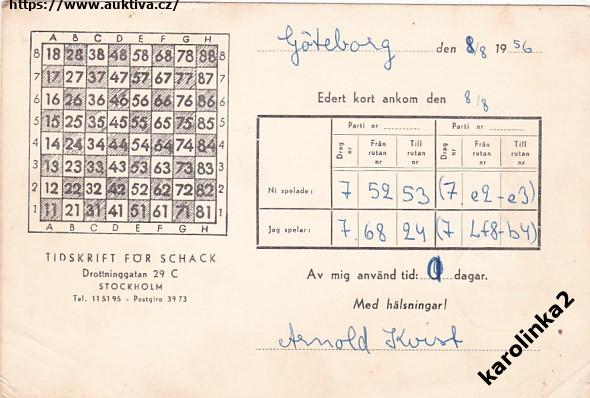 https://www.auktiva.cz/
A B C D E F G H
8 18 28 38 48 58 68 78 88 8
7 17 27 37 47 57 67 77 87 7
6 16 26 36 46 56 66 76 86 6
5 15 25 35 45 55 65 75 85 5
4 14 24 34 44 54 64 74 84 4
3 13 23 33 43 53 63 73 83 3
2 12 22 32 42 52 62 72 82 2
1 11 21 31 41 51 61 71 81 1
A B C D E F G H
TIDSKRIFT FÖR SCHACK
Drottninggatan 29 C
STOCKHOLM
Tel. 11 51 95 - Postgiro 39 73
Göteborg den 8/8 1956
Edert kort ankom den 8/8
Parti nr Parti nr
Drag nr Från rutan nr Till rutan nr Drag nr Från rutan nr Till rutan nr
Ni spelade: 7 52 53 (7 e2-e3)
Jag spelar: 7. 68 24 (7 Lf8-b4)
Av mig använd tid: 0 dagar.
Med hälsningar!
Arnold Kvist
karolinka2